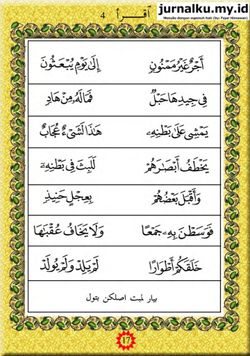 jurnalku.my.id
Menulis dengan sepenuh hati (by: Fajar Himawan)
اقرأ 4
أَجْرٌ غَيْرُ مَمْنُونٍ إِلَى يَوْمِ يُبْعَثُونَ
فِي جِيدِهَا حَبْلٌ فَمَالَهُ مِنْ هَادٍ
يَمْشِي عَلَى بَطْنِهِ هَذَا لَشَيْءٌ عُجَابٌ
يَخْطَفُ أَبْصَارَهُمْ لَلَبِثَ فِي بَطْنِهِ
وَأَقْبَلَ بَعْضُهُمْ بِعِجْلٍ حَنِيذٍ
فَوَسَطْنَ بِهِ جَمْعًا وَلَا يَخَافُ عُقْبَاهَا
خَلَقَكُمْ أَطْوَارًا لَمْ يَلِدْ وَلَمْ يُولَدْ
بيار لمبت اصلكن بتول
17